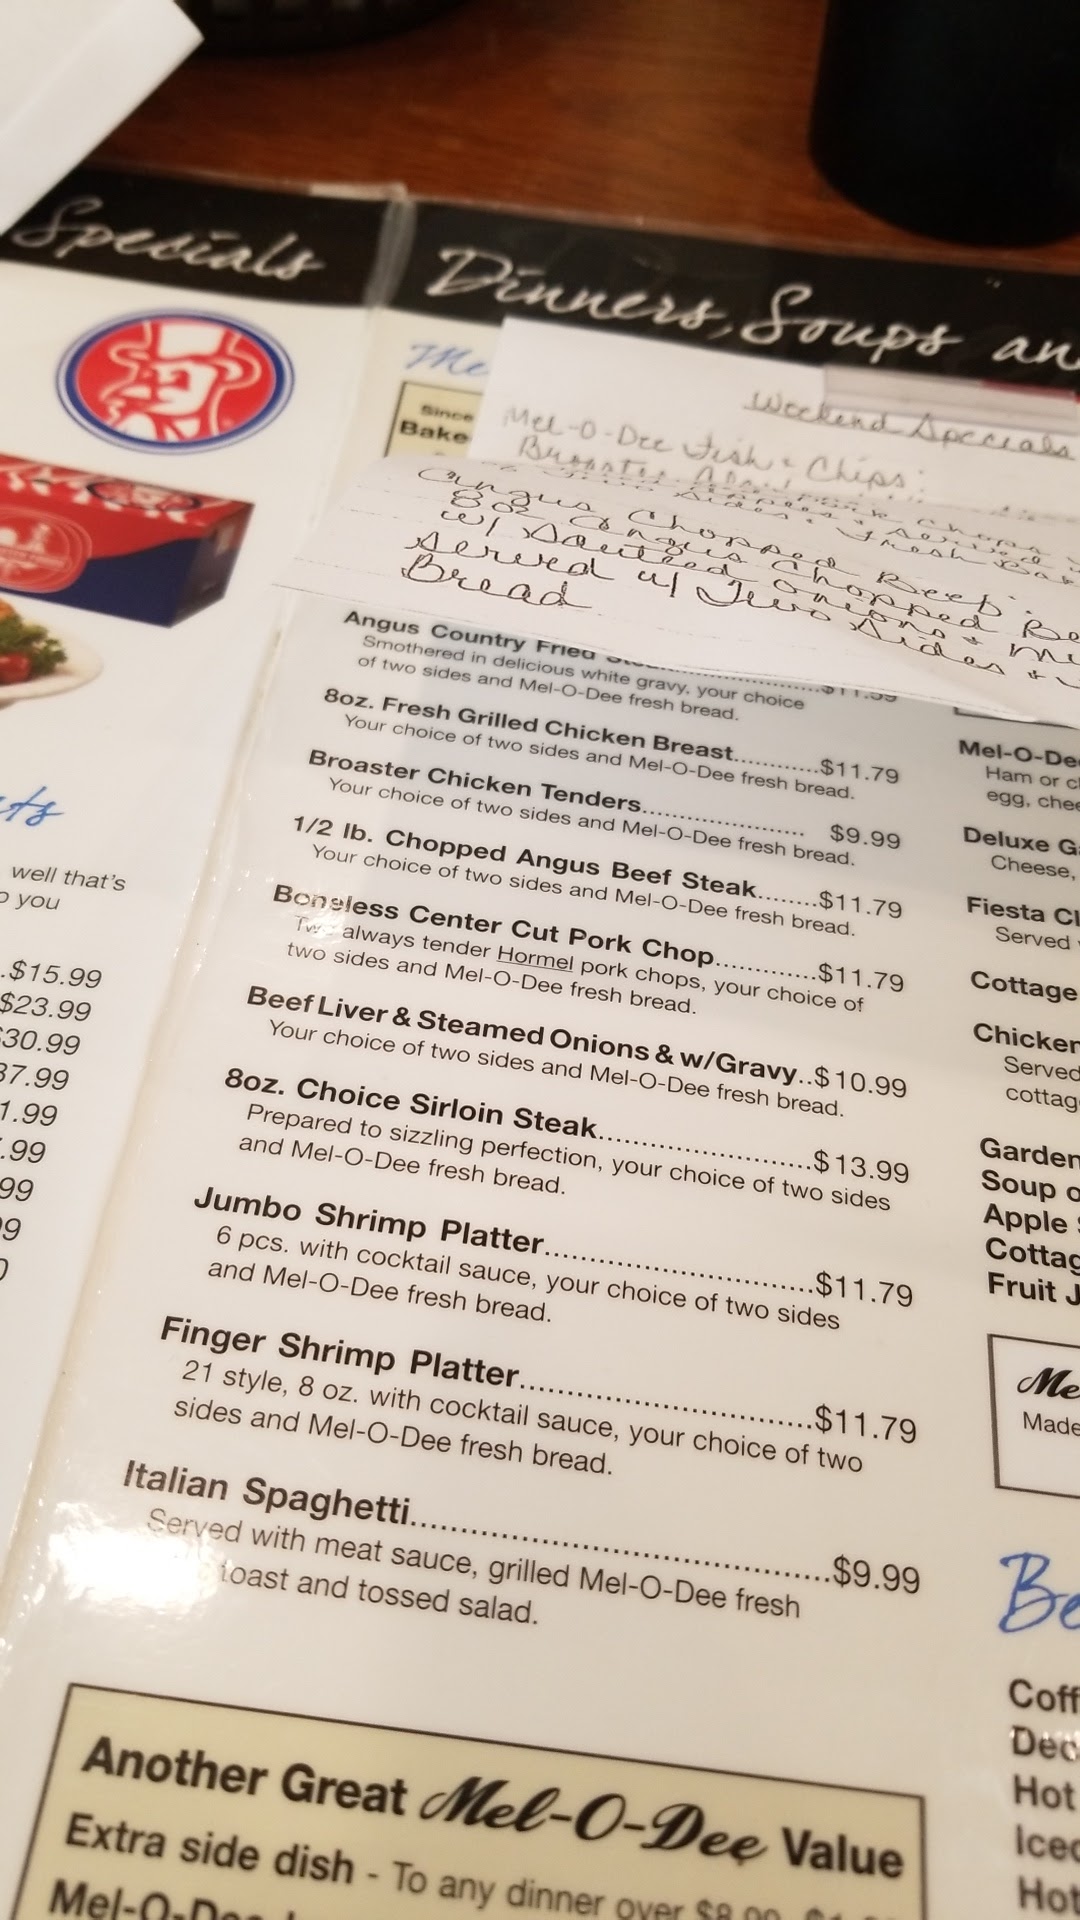 Specials
Dinners, Soups an
Me
Since
Bake
Weekend Specials
Mel-O-Dee Fish & Chips:
Angus Chopped Beef:
8oz Angus Chopped Be
w/ Sauteed Onions & Mu
Served w/ Two Sides &
Bread
Angus Country Fried $11.59
Smothered in delicious white gravy, your choice
of two sides and Mel-O-Dee fresh bread.
8oz. Fresh Grilled Chicken Breast............$11.79
Your choice of two sides and Mel-O-Dee fresh bread.
Broaster Chicken Tenders....................... $9.99
Your choice of two sides and Mel-O-Dee fresh bread.
1/2 lb. Chopped Angus Beef Steak........$11.79
Your choice of two sides and Mel-O-Dee fresh bread.
Boneless Center Cut Pork Chop.............$11.79
Two always tender Hormel pork chops, your choice of
two sides and Mel-O-Dee fresh bread.
Beef Liver & Steamed Onions & w/Gravy..$10.99
Your choice of two sides and Mel-O-Dee fresh bread.
8oz. Choice Sirloin Steak...........................$13.99
Prepared to sizzling perfection, your choice of two sides
and Mel-O-Dee fresh bread.
Jumbo Shrimp Platter.................................$11.79
6 pcs. with cocktail sauce, your choice of two sides
and Mel-O-Dee fresh bread.
Finger Shrimp Platter...................................$11.79
21 style, 8 oz. with cocktail sauce, your choice of two
sides and Mel-O-Dee fresh bread.
Italian Spaghetti................................................$9.99
Served with meat sauce, grilled Mel-O-Dee fresh
toast and tossed salad.
Another Great Mel-O-Dee Value
Extra side dish - To any dinner over
Mel-O-Dee
ts
well that's
o you
.$15.99
$23.99
$30.99
37.99
1.99
.99
99
9
0
Mel-O-De
Ham or c
egg, chee
Deluxe G
Cheese,
Fiesta C
Served
Cottage
Chicken
Served
cottag
Garden
Soup o
Apple S
Cottag
Fruit J
Me
Made
Be
Coff
Dec
Hot
Iced
Hot